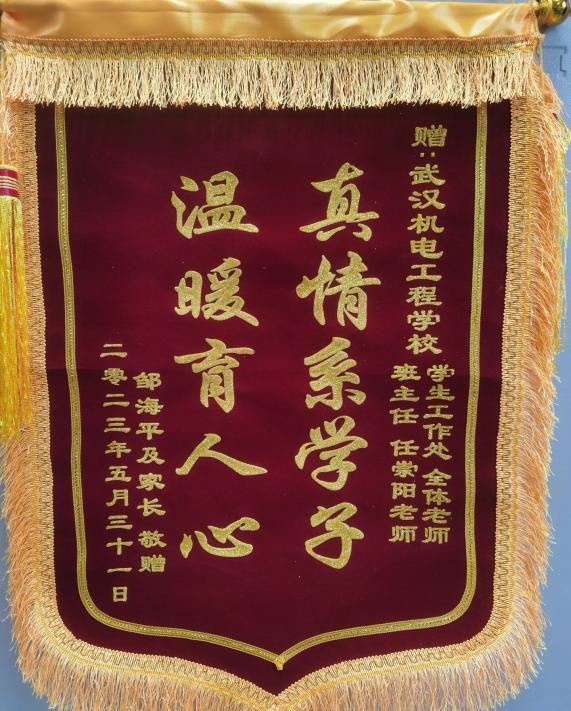 赠：武汉机电工程学校
学生工作处 全体老师
班主任 任崇阳老师
真情系学子
温暖育人心
邹海平及家长 敬赠
二零二三年五月三十一日